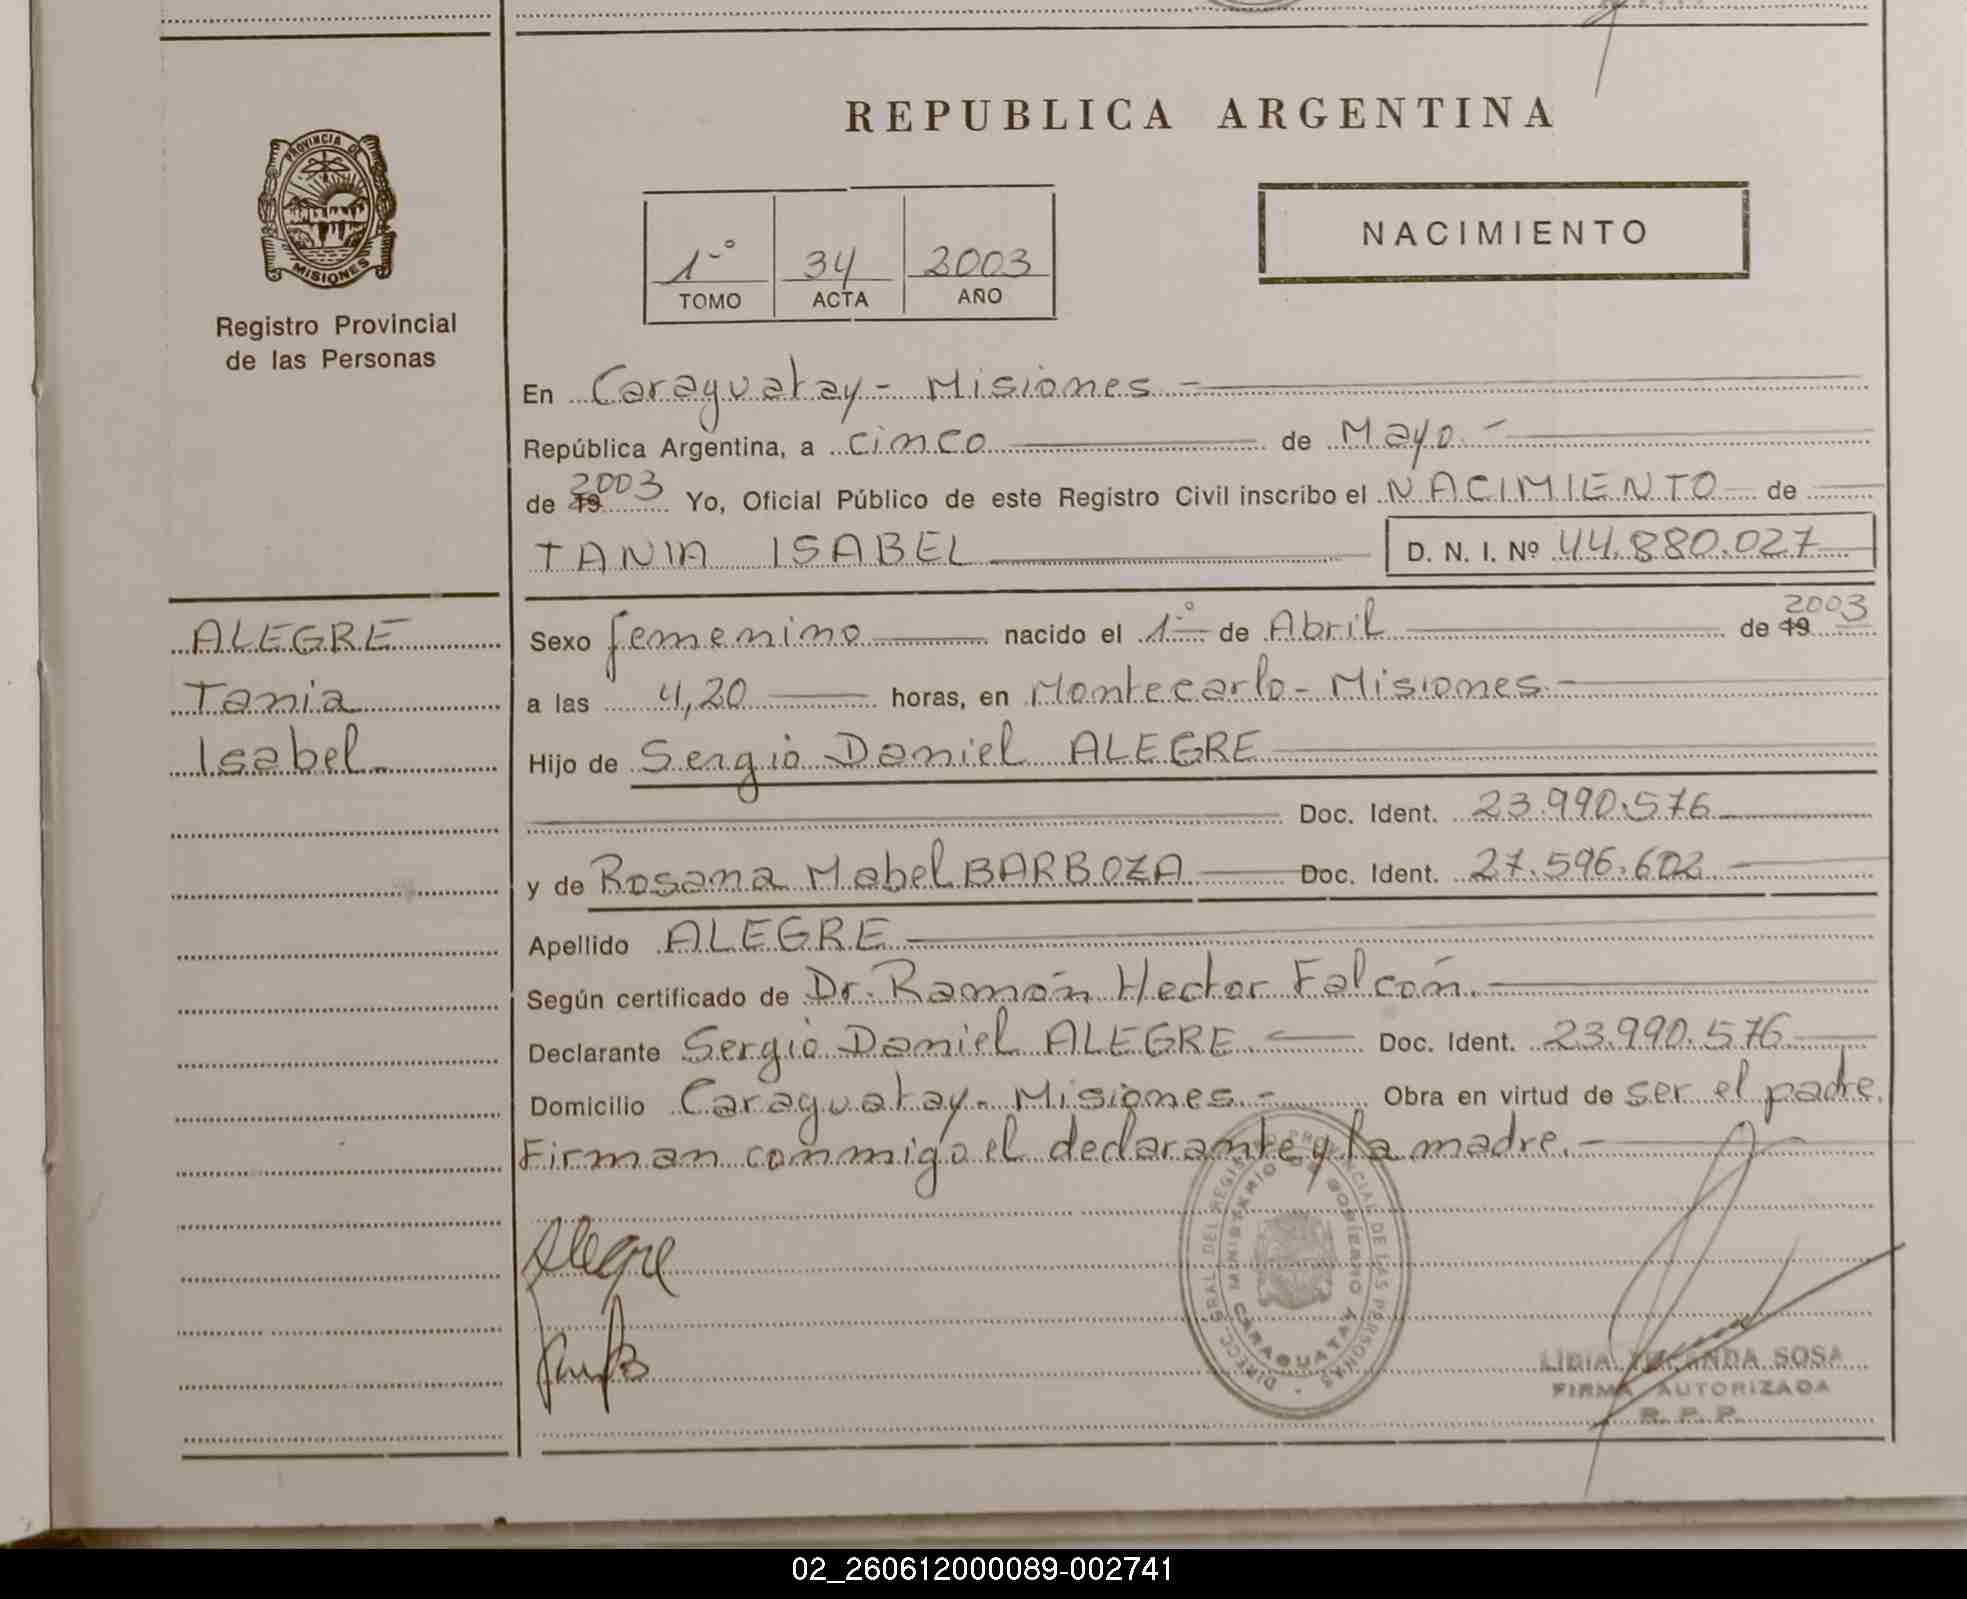 PROVINCIA DE
MISIONES
Registro Provincial
de las Personas
REPUBLICA ARGENTINA
1º 34 2003
TOMO ACTA AÑO
NACIMIENTO
En Caraguatay - Misiones -
República Argentina, a cinco de Mayo.-
de 19 2003 Yo, Oficial Público de este Registro Civil inscribo el NACIMIENTO de
TANIA ISABEL D. N. I. Nº 44.880.027
ALEGRE
Tania
Isabel
Sexo femenino nacido el 1º de Abril de 19 2003
a las 4,20 horas, en Montecarlo - Misiones.-
Hijo de Sergio Daniel ALEGRE
Doc. Ident. 23.990.576
y de Rosana Mabel BARBOZA Doc. Ident. 27.596.602
Apellido ALEGRE
Según certificado de Dr. Ramón Hector Falcón.
Declarante Sergio Daniel ALEGRE. Doc. Ident. 23.990.576
Domicilio Caraguatay - Misiones.- Obra en virtud de ser el padre.
Firman conmigo el declarante y la madre.-
Alegre
DIRECC. GRAL DEL REGISTRO PROVINCIAL DE LAS PERSONAS
MINISTERIO DE GOBIERNO
CARAGUATAY
LIDIA YOLANDA SOSA
FIRMA AUTORIZADA
R. P. P.
02_260612000089-002741